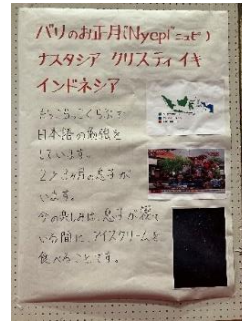 バリのお正月(Nyepi ニュピ)
ナスタシア クリスティ イキ
インドネシア
日本語の勉強を
しています。
2才 ヵ月の息子が
います。
今の楽しみは、息子が寝て
いる間に、アイスクリームを
食べることです。